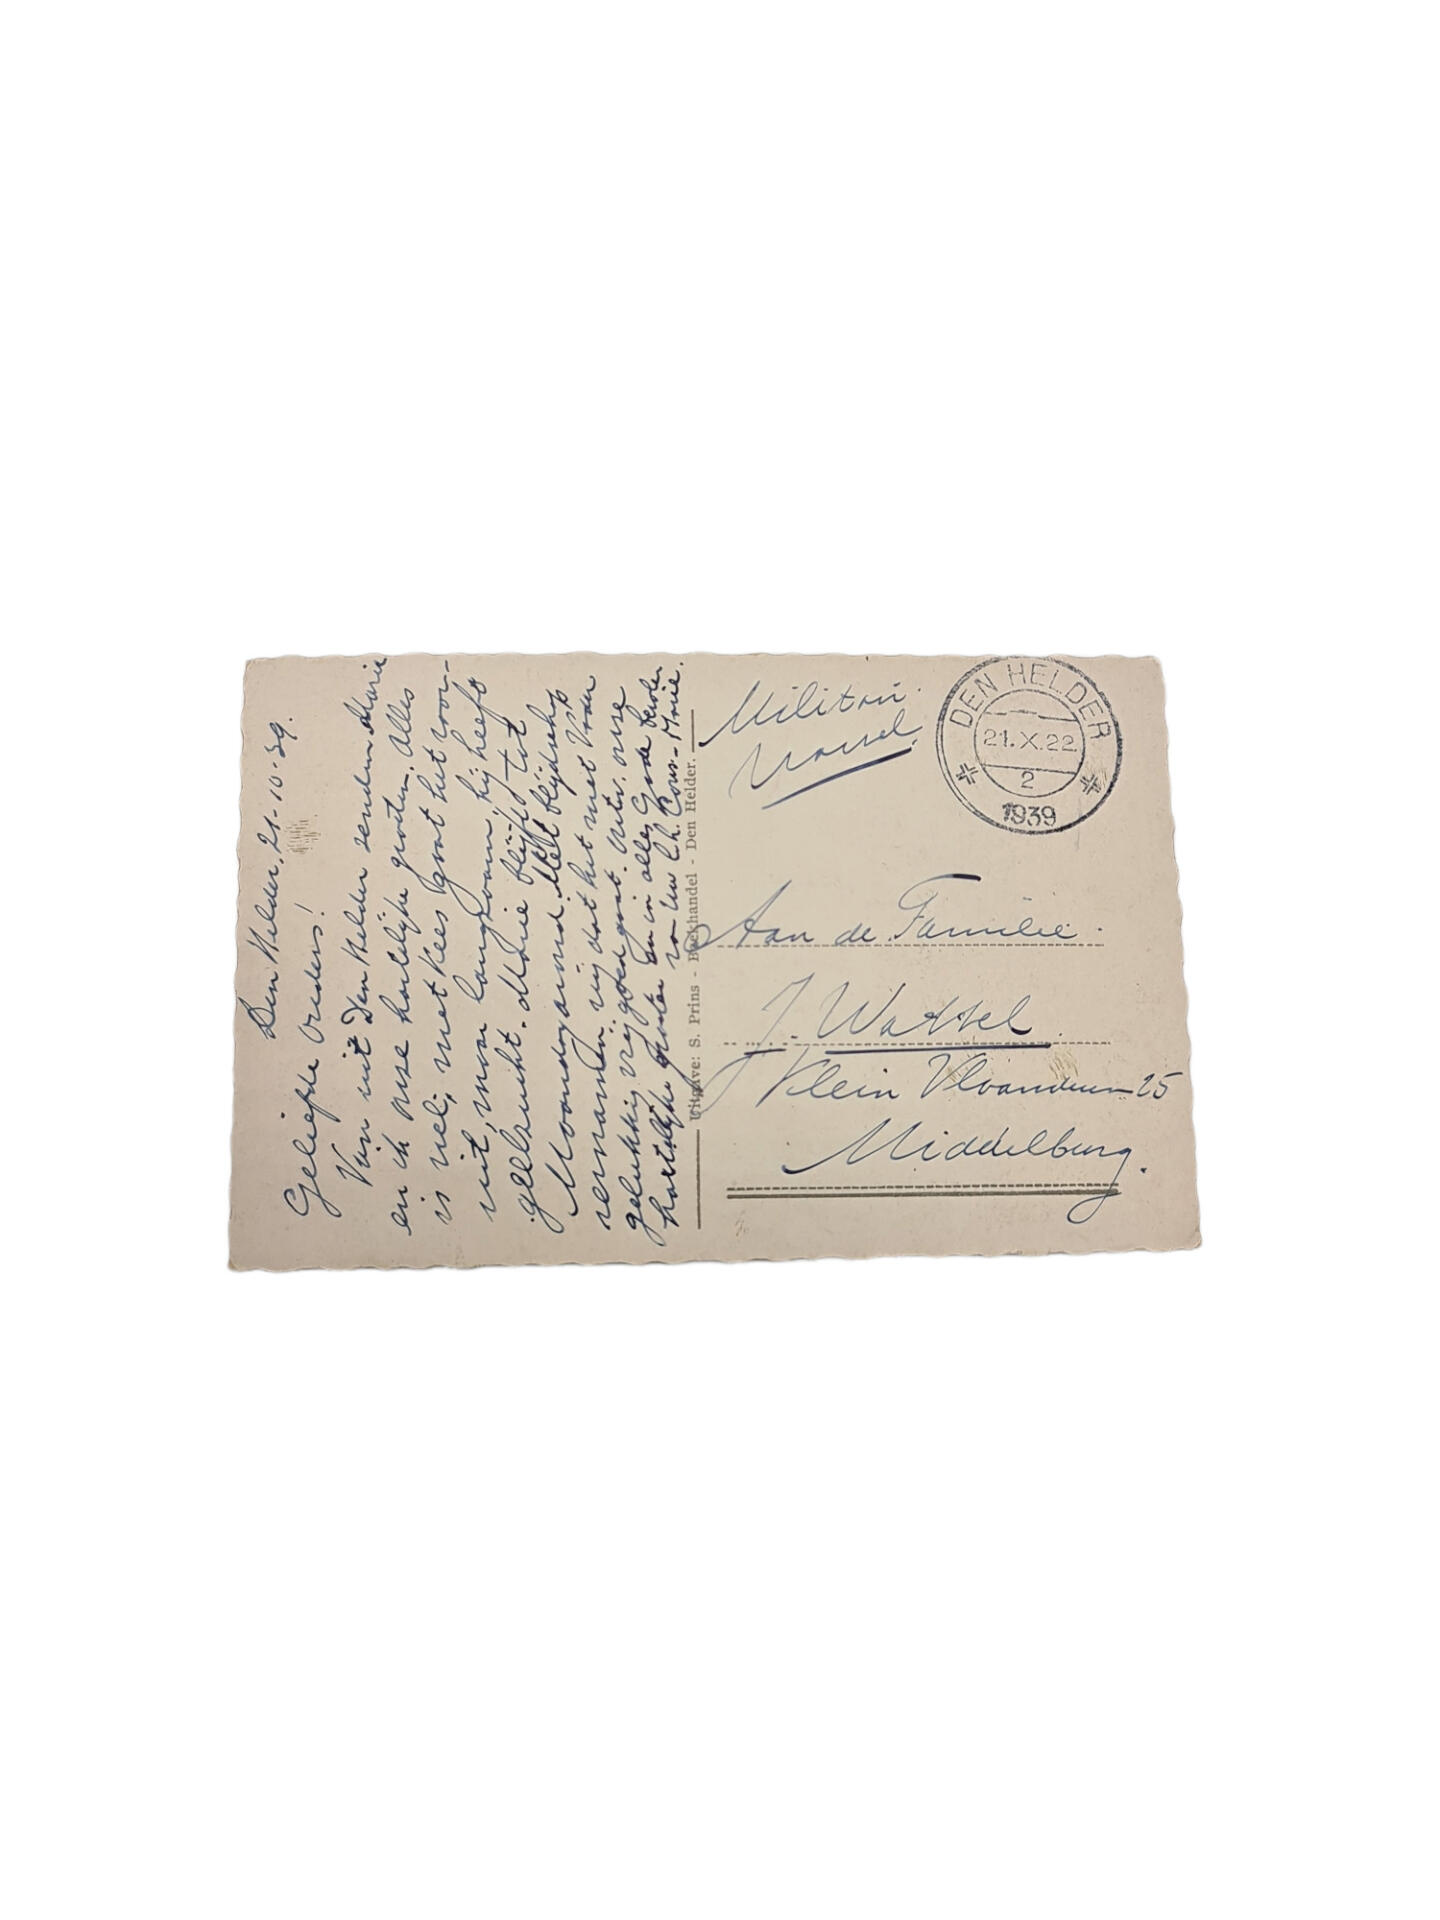 Den Helder, 21-10-39.
Geliefde ouders!
Van uit Den Helder zenden Marie
en ik onze hartelijke groeten. Alles
is wel; met Kees gaat het voor-
uit, maar langzaam, hij heeft
geelzucht. Marie blijft tot
Maandagavond. Met blijdschap
vernamen wij dat het met Vader
gelukkig vrij goed gaat. Ontv. onze
hartelijke groeten en in alles Gode bevolen
van Uw l.h. Marie.
Uitgave: S. Prins - Boekhandel - Den Helder.
Militair
DEN HELDER
21.X.22
2
1939
Aan de Familie
J. Wattel
Klein Vlaanderen 25
Middelburg.